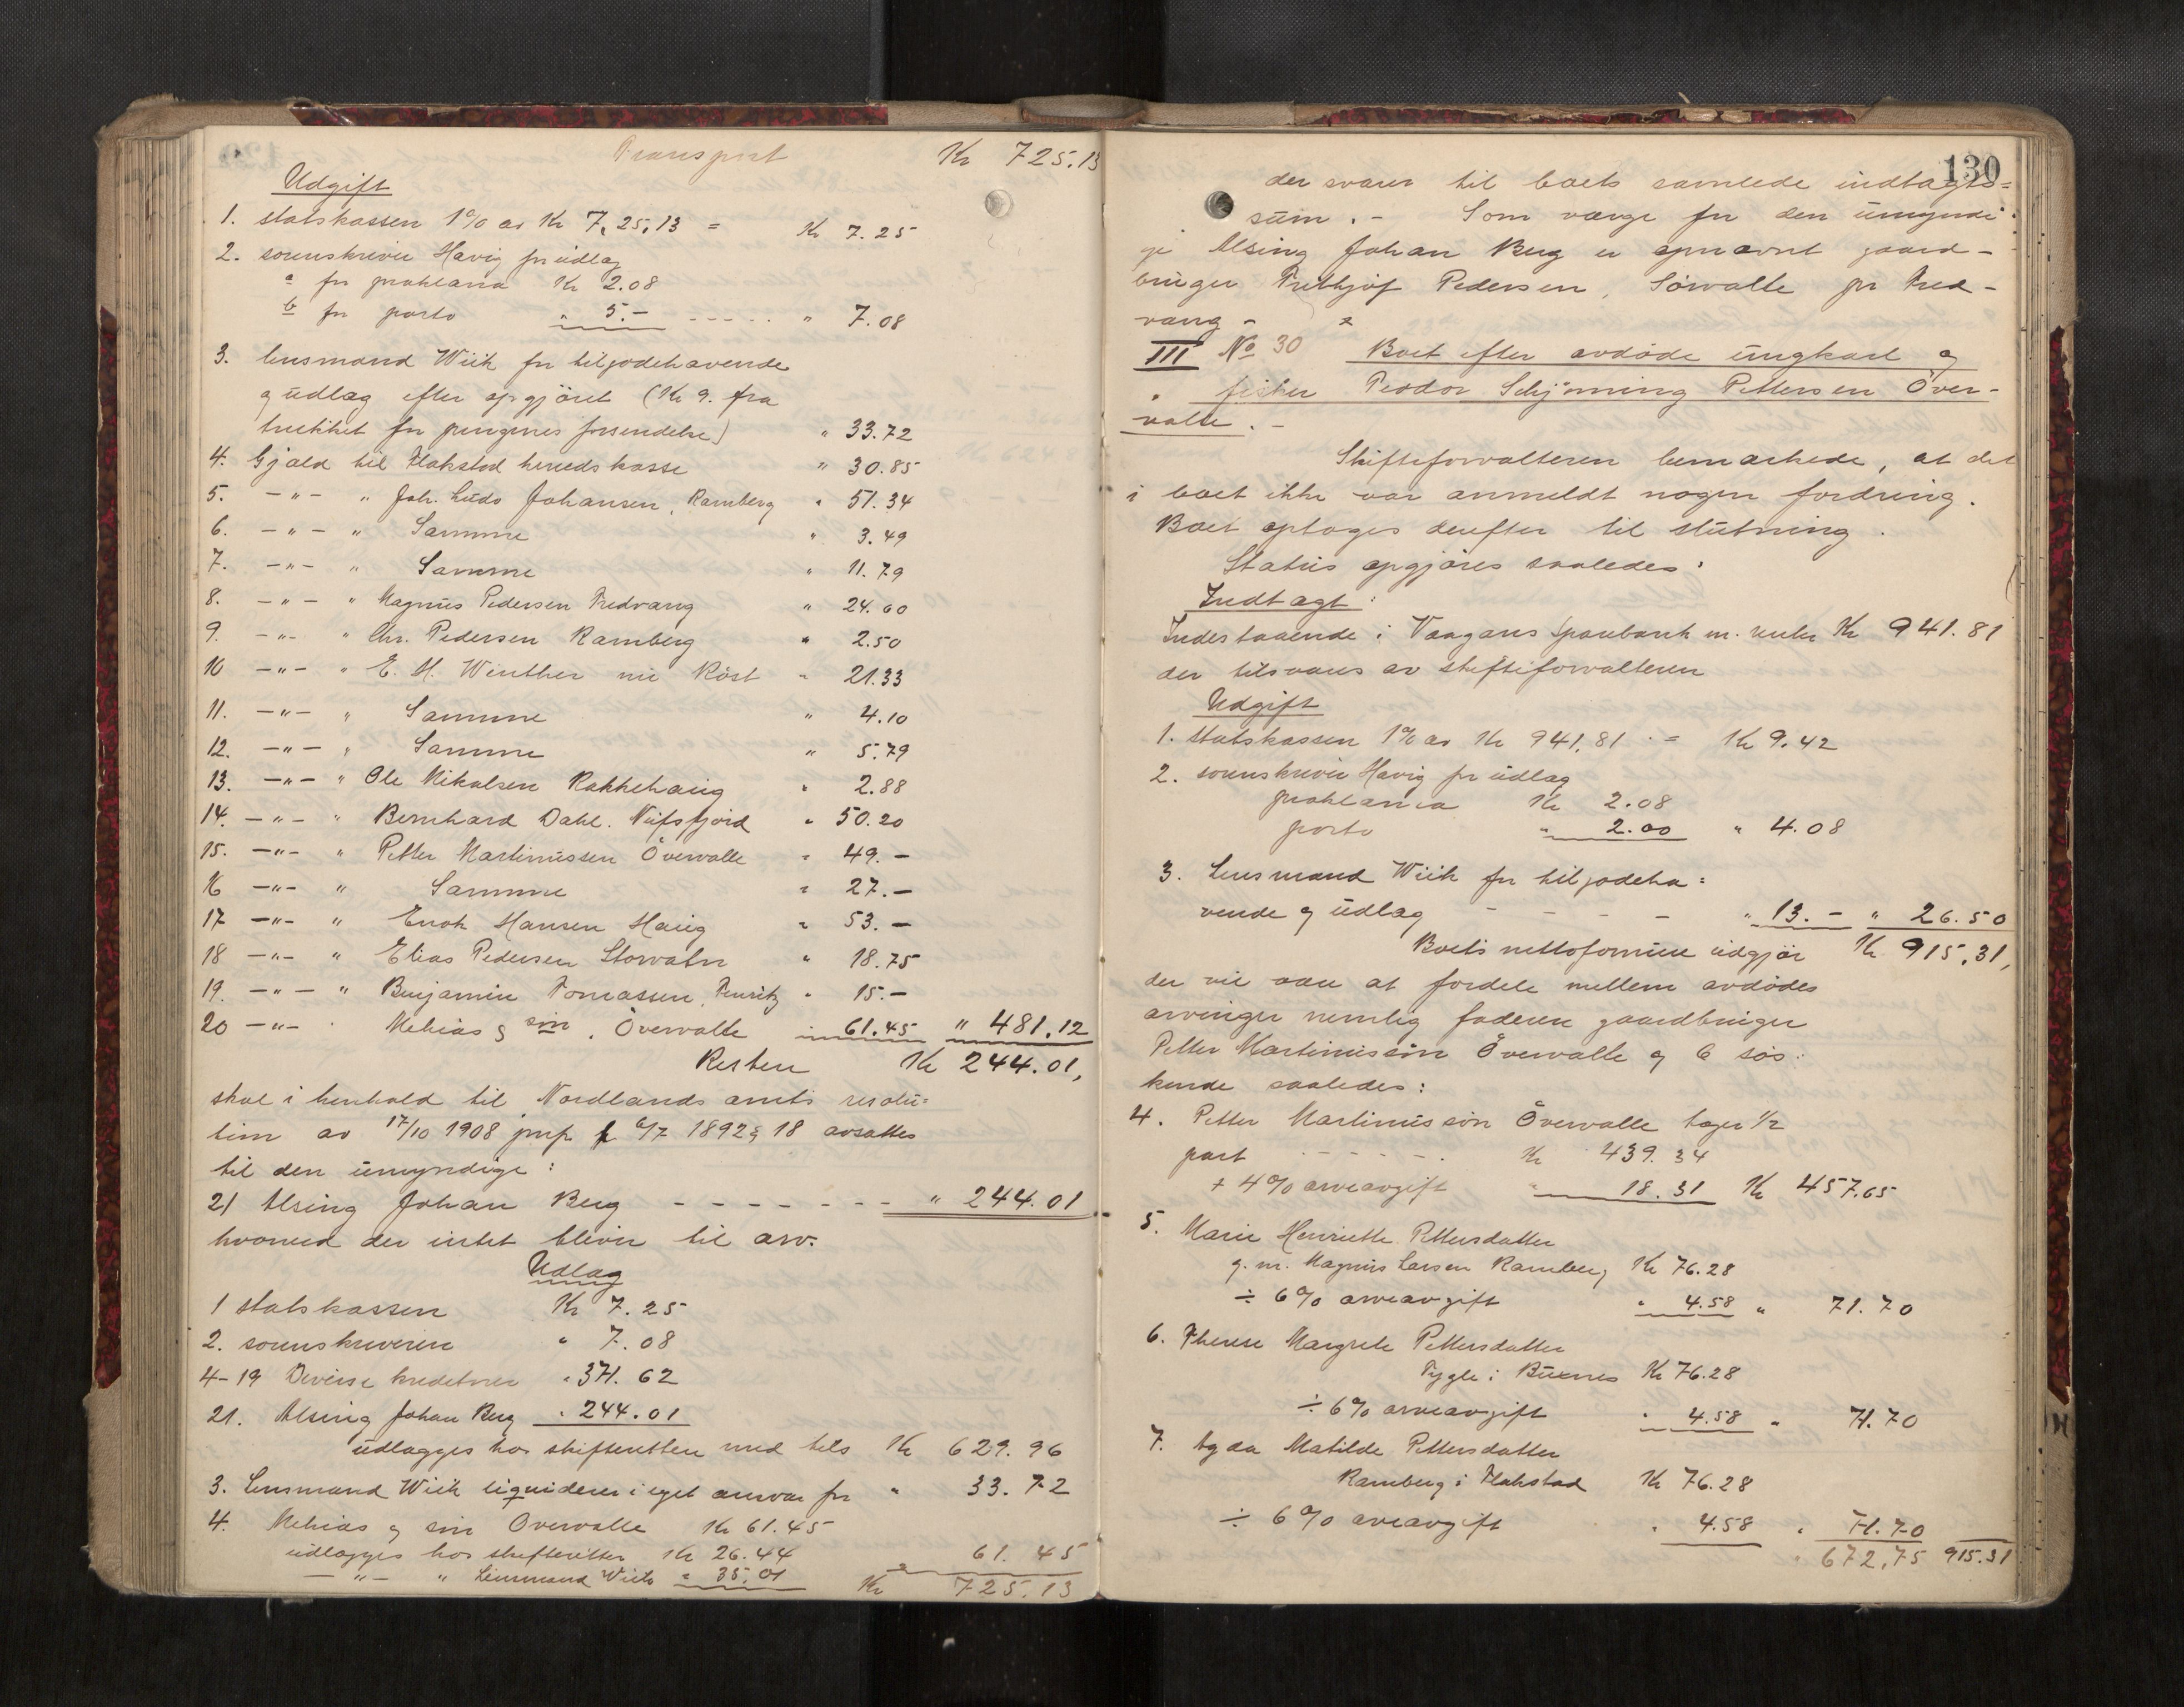 Transport Kr 725.13
Udgift
1. statskassen 1% av Kr 7,25,13 = Kr 7.25
2. sorenskriver Havig for udlag
a for proklama Kr 2.08
b for porto " 5.- " 7.08
3. lensmand Wiik for tilgodehavende
og udlag efter opgjöret (Kr 9. fra
trukket for pengenes forsendelse) " 33.72
4. Gjæld til Flakstad heredskasse " 30.85
5. -"- " Joh. Ludv Johansen, Ramberg " 51.34
6. -"- " Samme " 3.49
7. -"- " Samme " 11.79
8. -"- " Magnus Pedersen Fredvang " 24.60
9. -"- " Chr. Pedersen Ramberg " 2.50
10 -"- " E. H. Winther Röst " 21.33
11. -"- " Samme " 4.10
12. -"- " Samme " 5.79
13. -"- " Ole Nikolsen Rakkehaug " 2.88
14. -"- " Bernhard Dahl. Nufsfjord " 50.20
15. -"- " Petter Martinussen Övervolle " 49.-
16 -"- " Samme " 27.-
17 -"- " Enok Hansen Haug " 53.-
18 -"- " Elias Pedersen Storvatn " 18.75
19. -"- " Benjamin Tomassen, " 15.-
20 -"- Mekias & sön, Övervolle " 61.45 " 481.12
Resten Kr 244.01,
skal i henhold til Nordlands amts resolu=
tion av 17/10 1908 1892 § 18 avsættes
til den umyndige:
21 Alsing Johan Berg - - - - - - - " 244.01
hvorved der intet bliver til arv.
Udlag
1 statskassen Kr 7.25
2. sorenskriveren " 7.08
4-19 Diverse kreditorer " 371.62
21. Alsing Johan Berg " 244.01
udlægges hos skifteretten med tils Kr 629.96
3. Lensmand Wiik liquiderer i eget ansvar for " 33.72
4. Mekias og sön Overvolle Kr 61.45
udlægges hos skifteretten Kr 26.44 61.45
-"- " Lensmand Wiik " 35.01
Kr 725.13
130
der svarer til boets samlede indtægts=
sum. - Som værge for den umyndi=
ge Alsing Johan Berg er opnævnt gaard-
bruger Frithjof Pedersen, Sörvolle pr Fred-
vang -
III No 30 Boet efter avdöde ungkarl og
fisker Peodor Schjönning Pettersen Över-
volle. -
Skifteforvalteren bemærkede, at det
i boet ikke var anmeldt nogen fordring.
Boet optoges derefter til slutning.
Status opgjöres saaledes:
Indtægt:
Indestaaende i Vaagans Sparebank m. renter Kr 941.81
der tilsvares av skifteforvalteren
Udgift
1. statskassen 1% av Kr 941,81 = Kr 9.42
2. sorenskriver Havig for udlag
proklama Kr 2.08
porto " 2.00 " 4.08
3. Lensmand Wiik for tilgodeha=
vende og udlag - - - - " 13.- " 26.50
Boets nettoformue udgjör Kr 915.31,
der vil være at fordele mellem avdödes
arvinger nemlig faderen gaardbruger
Petter Martinussön Övervolle og 6 sös-
kende saaledes:
4. Petter Martinussön Övervolle tager 1/2
part Kr 439.34
+ 4% arveavgift " 18.31 Kr 457.65
5. Marie Henriette Pettersdatter
g. m. Magnus Larsen Ramberg Kr 76.28
÷ 6% arveavgift " 4.58 " 71.70
6. Therese Margrete Pettersdatter
Tygle i Buxnes Kr 76.28
÷ 6% arveavgift " 4.58 " 71.70
7. Matilde Pettersdatter
Ramberg i Flakstad Kr 76.28
÷ 6% arveavgift " 4.58 " 71.70
" 672,75 915.31